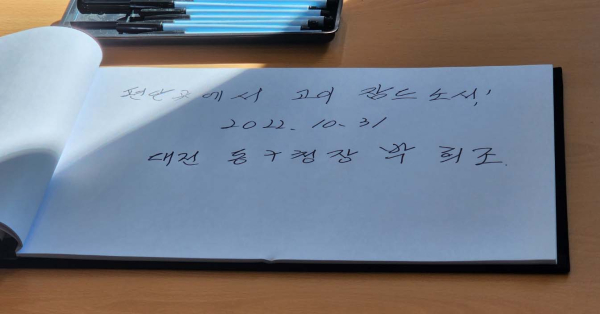 편안곳에서 고이 잠드소서!
2022. 10-31
대전 동구청장 박 희조.